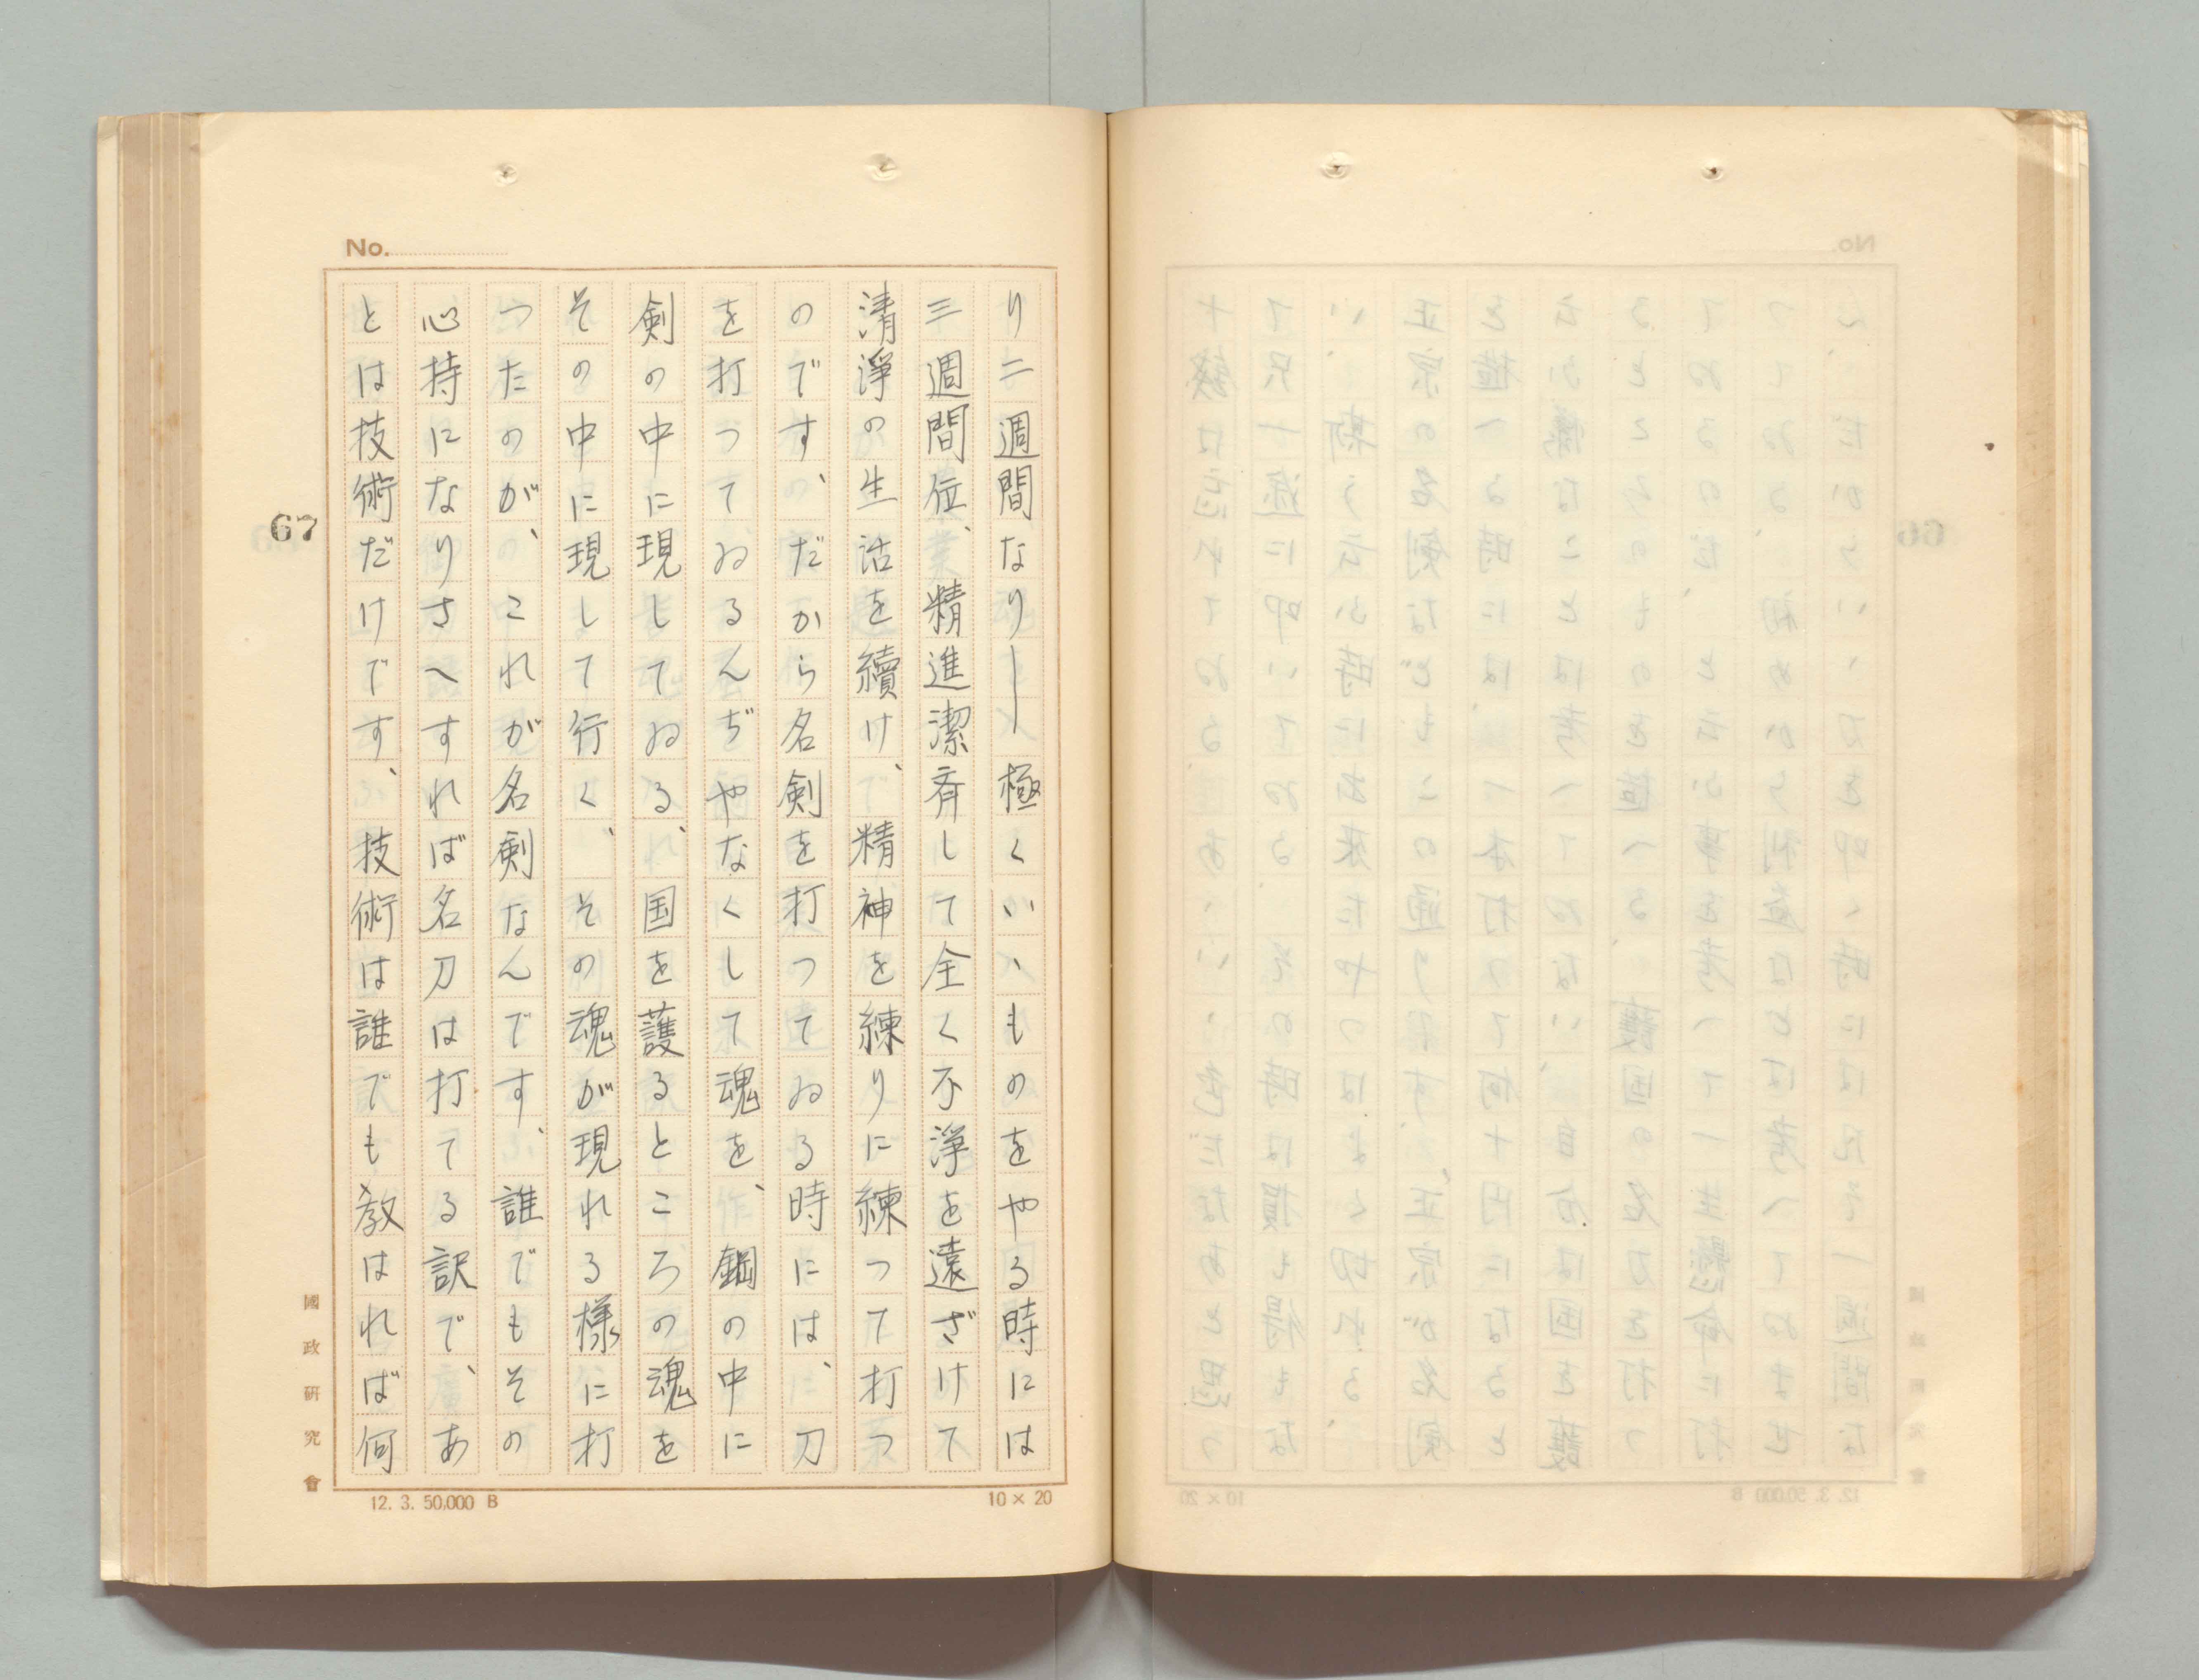 No.
り二週間なり――極くいゝものをやる時には
三週間位、精進潔斉して全く不淨を遠ざけて
清淨の生活を續け、精神を練りに練つて打つ
のです、だから名剣を打つてゐる時には、刀
を打つてゐるんぢやなくして魂を、鋼の中に
剣の中に現してゐる、国を護るところの魂を
その中に現して行く、その魂が現れる様に打
つたのが、これが名剣なんです、誰でもその
心持になりさへすれば名刀は打てる訳で、あ
とは技術だけです、技術は誰でも教はれば何
67
國政研究會
12. 3. 50,000 B
10×20